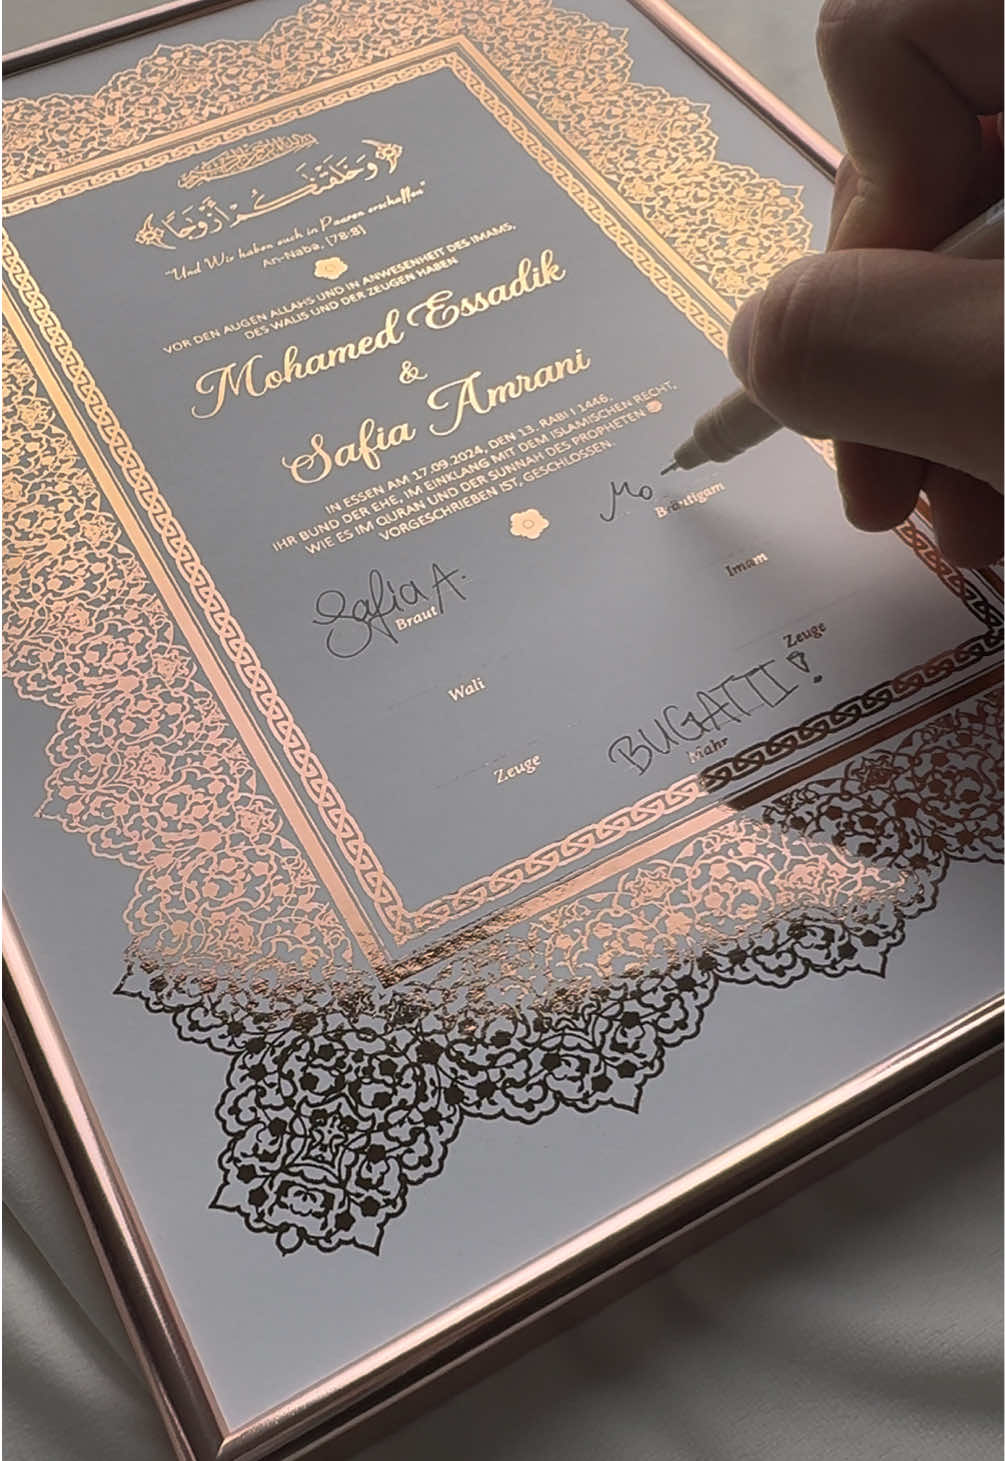 وَخَلَقْنَٰكُمْ أَزْوَٰجًا
"Und Wir haben euch in Paaren erschaffen"
An-Naba, [78:8]
VOR DEN AUGEN ALLAHS UND IN ANWESENHEIT DES IMAMS,
DES WALIS UND DER ZEUGEN HABEN
Mohamed Essadik
&
Safia Amrani
IN ESSEN AM 17.09.2024, DEN 13. RABI I 1446,
IHR BUND DER EHE, IM EINKLANG MIT DEM ISLAMISCHEN RECHT,
WIE ES IM QURAN UND DER SUNNAH DES PROPHETEN
VORGESCHRIEBEN IST, GESCHLOSSEN.
Mo
Bräutigam
Safia A.
Braut
Imam
Wali
Zeuge
Zeuge
BUGATTI!
Mahr